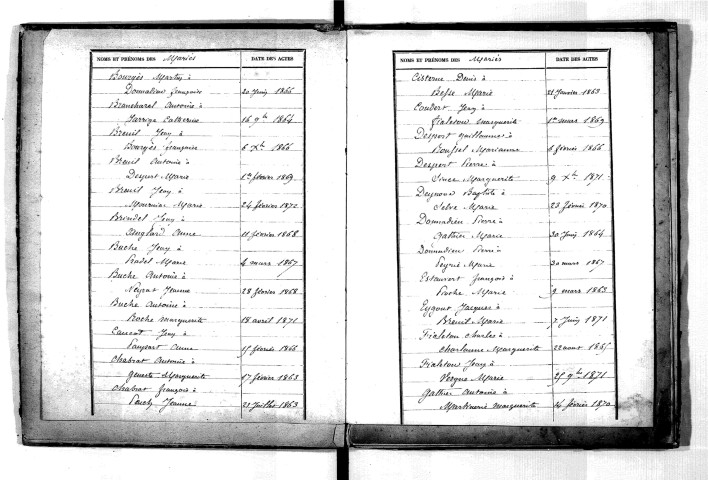 NOMS ET PRÉNOMS DES Mariés DATE DES ACTES
Bourgès Martin à
Donnadieu françoise 20 Juin 1866
Brancharel Antoine à
Jarrige Catherine 16 9bre 1864
Breuil Jean à
Bourgès françoise 6 Xbre 1866
Breuil Antoine à
Despert Marie 1er février 1869
Breuil Jean à
Mournier Marie 24 février 1872
Brindel Jean à
Anglard Anne 11 février 1868
Buche Jean à
Pradel Marie 4 mars 1867
Buche Antoine à
Neyrat Jeanne 28 février 1868
Buche Antoine à
Boche marguerite 18 avril 1871
Jean à
Anne février 1866
Chabrat Antoine à
Marguerite 17 février 1863
Chabrat françois à
Pouch Jeanne 21 Juillet 1863
NOMS ET PRÉNOMS DES Mariés DATE DES ACTES
Cisterne Denis à
Besse Marie 21 Janvier 1863
Coudert Jean à
Fialeton marguerite 1er mars 1869
Despert guillaume à
Bouyssel Marianne 6 février 1866
Despert Pierre à
Marguerite 9 Xbre 1871
Baptiste à
Selve Marie 23 février 1870
Donnadieu Pierre à
Gathier Marie 30 Juin 1864
Donnadieu Pierre à
Peyrié Marie 30 mars 1867
Estouvert françois à
Poche Marie 9 mars 1863
Eygout Jacques à
Breuil Marie 7 Juin 1871
Fialeton Charles à
Marguerite 22 août
Fialeton Jean à
Vergne Marie 25 9bre 1871
Gathier Antoine à
Martinerie marguerite 4 février 1870